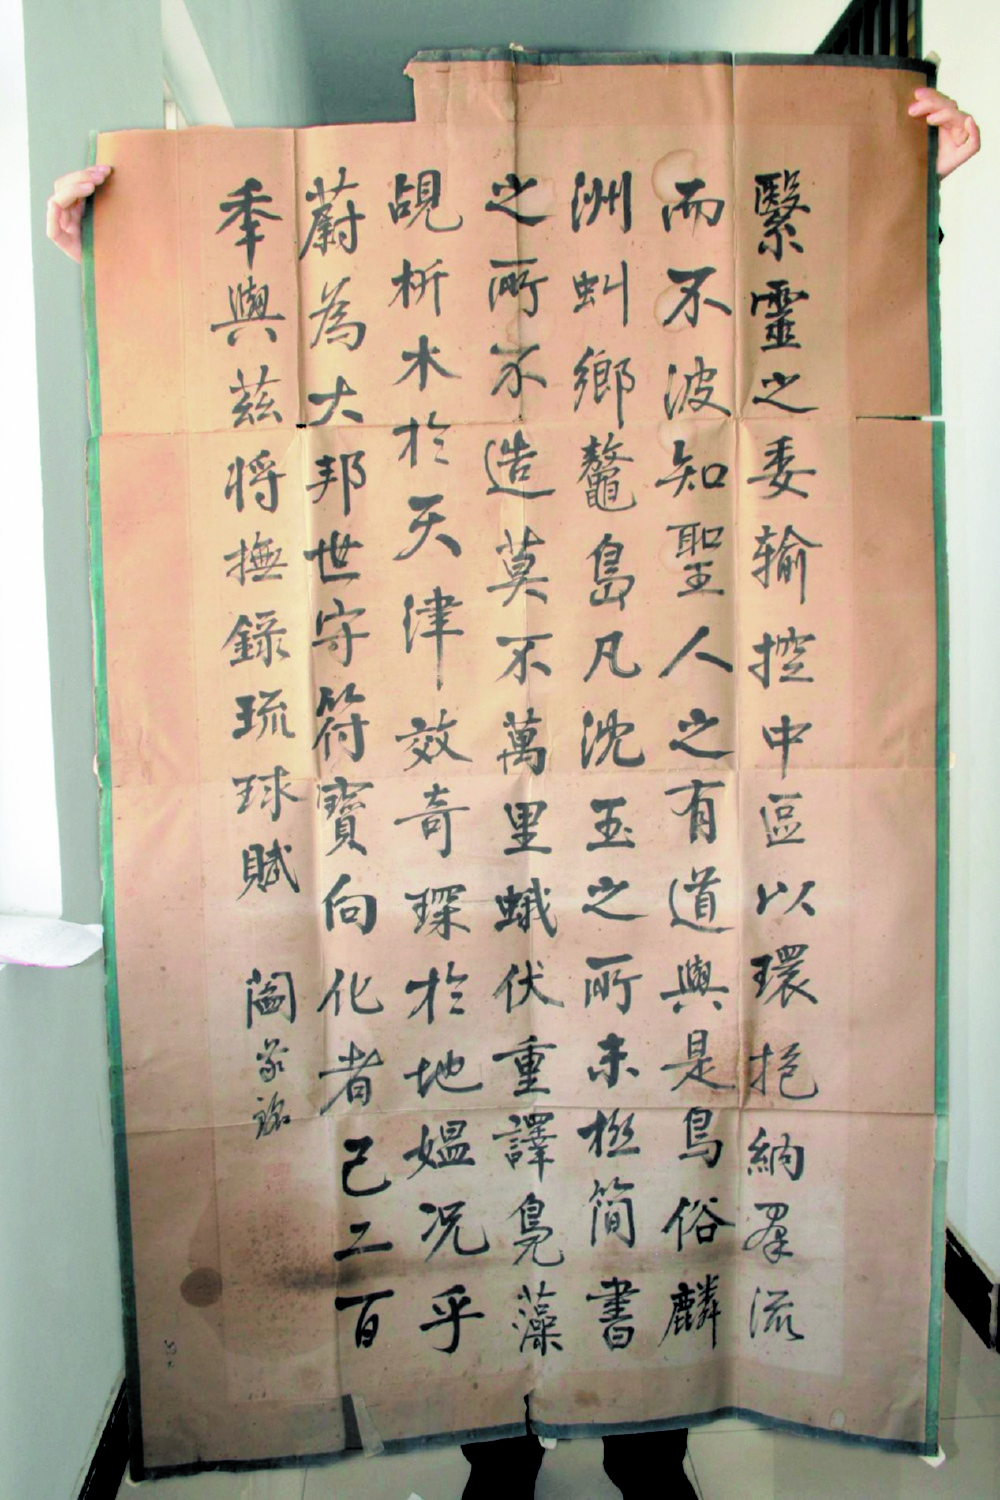 繄靈之委输控中區以環抱納羣流
而不波知聖人之有道與是島俗麟
洲虯鄉鼇島凡沈玉之所未極簡書
之所不造莫不萬里蛾伏重譯鳧藻
覘析木於天津效奇琛於地媼况乎
蔚為大邦世守符寶向化者已二百
季輿茲將撫錄琉球賦
閻敬銘